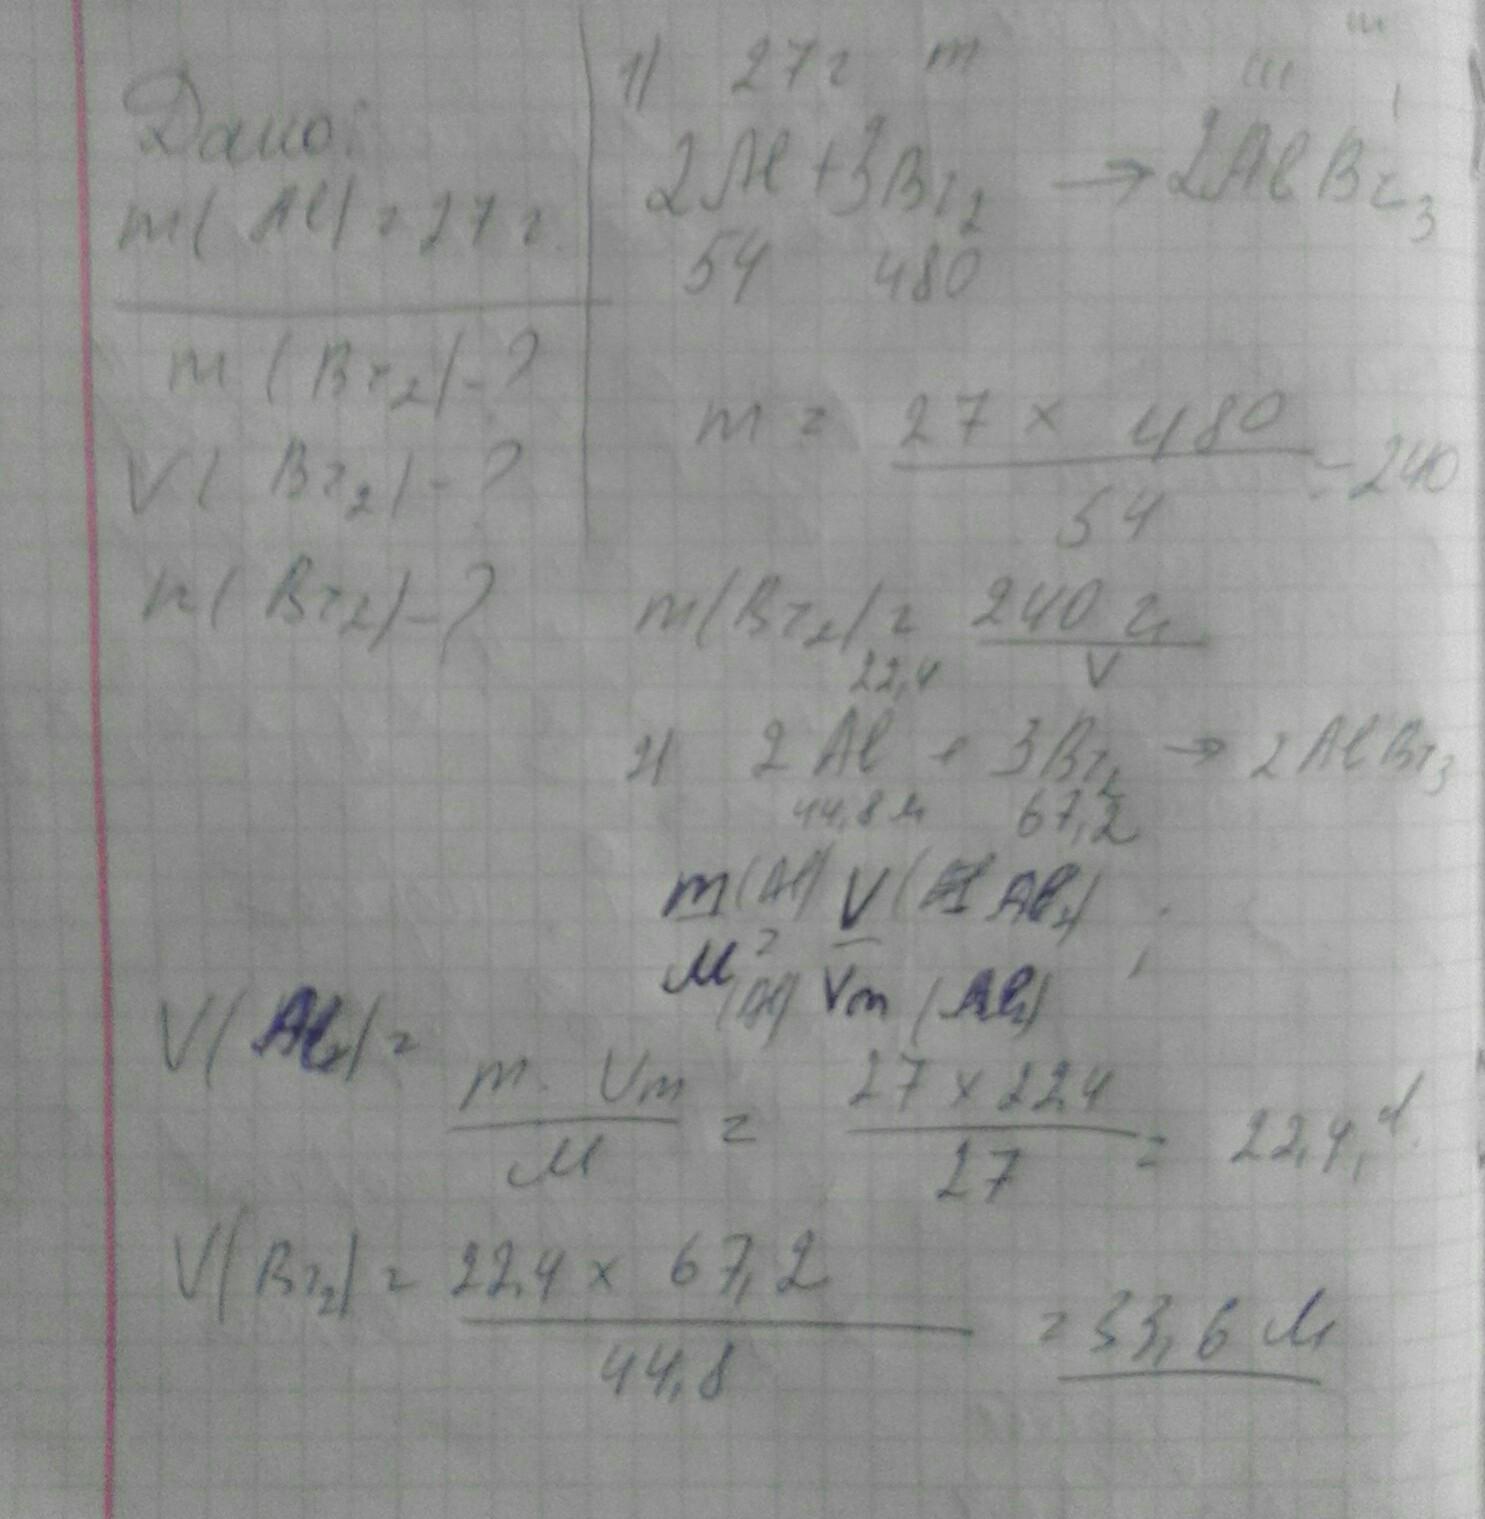 Дано:
m(Al) = 27 г.
m(Br2) - ?
V(Br2) - ?
n(Br2) - ?
1) 27 г m
III I
2Al + 3Br2 → 2AlBr3
54 480
m = 27 × 480 / 54 = 240
m(Br2) = 240 г
22,4 V
2) 2Al + 3Br2 → 2AlBr3
44,8 л 67,2
m(Al) / M(Al) = V(Al2) / Vm(Al2) ;
V(Al2) =
m · Vm / M = 27 × 22,4 / 27 = 22,4 л.
V(Br2) = 22,4 × 67,2 / 44,8 = 33,6 л